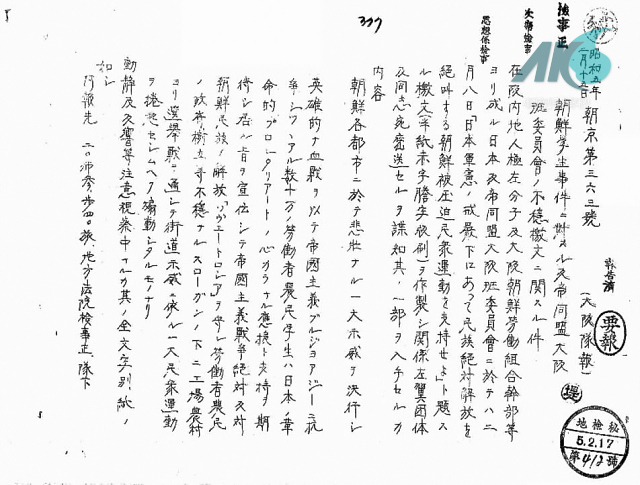 337
検事正
次席検事
思想係検事
昭和五年二月十五日 朝京第三六三號
報告濟
(大阪隊報)
要報
朝鮮学生事件ニ対スル反帝同盟大阪
班委員會ノ不穏檄文ニ関スル件
在阪内地人極左分子及大阪朝鮮労働組合幹部等
ヨリ成ル日本反帝同盟大阪班委員會ニ於テハ二
月八日「日本軍憲ノ戒厳下にあって民族絶対解放を
絶叫する朝鮮被圧迫民衆運動を支持せよ」ト題ス
ル檄文(半紙赤字謄写版刷)ヲ作製シ関係左翼団体
及同志宛密送セルヲ諜知其ノ一部ヲ入手セルカ
内容
朝鮮各都市ニ於テ悲壮ナル一大示威ヲ決行シ
英雄的ナ血戦ヲ以テ帝國主義ブルジョアジーニ抗
争シツツアル数十万ノ労働者農民学生ハ日本ノ革
命的プロレタリアートノ心カラナル應援ト支持ヲ期
待シ居ル旨ヲ宣伝シテ帝國主義戦争絶対反対
朝鮮民族ノ解放ソヴエートロシアヲ守レ労働者農民
ノ政府樹立等不穏ナルスローガンノ下ニ工場農村
ヨリ選挙戦ヲ通シテ街道示威ニ依ル一大民衆運動
ヲ捲起セシムヘク煽動シタルモノナリ
動静及反響等注意視察中ナルカ其ノ全文字別紙ノ
如シ
地檢秘
5.2.17
第412號
AK